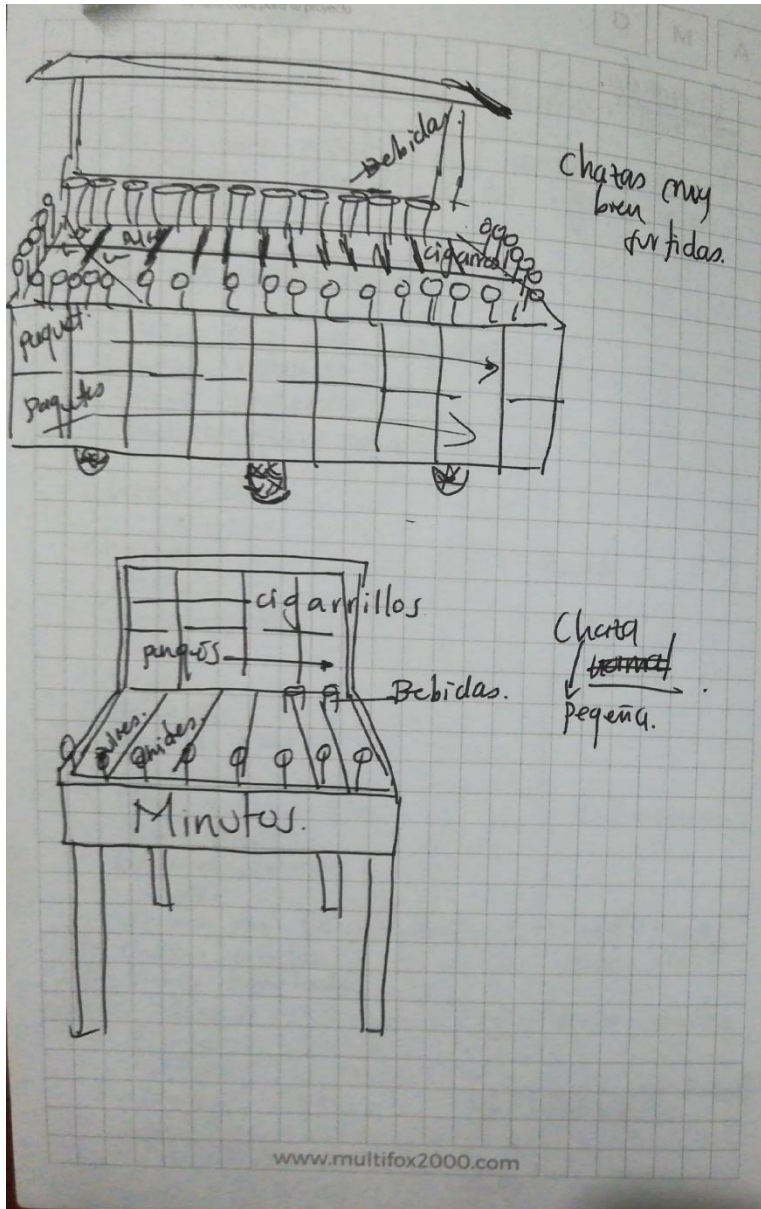 D M A
Bebidas
Chazas muy
bien
surtidas.
cigarros
paquet.
paquetes
cigarrillos
ponqués
Bebidas.
Chaza
pegeña.
dulces.
Minutos.
www.multifox2000.com